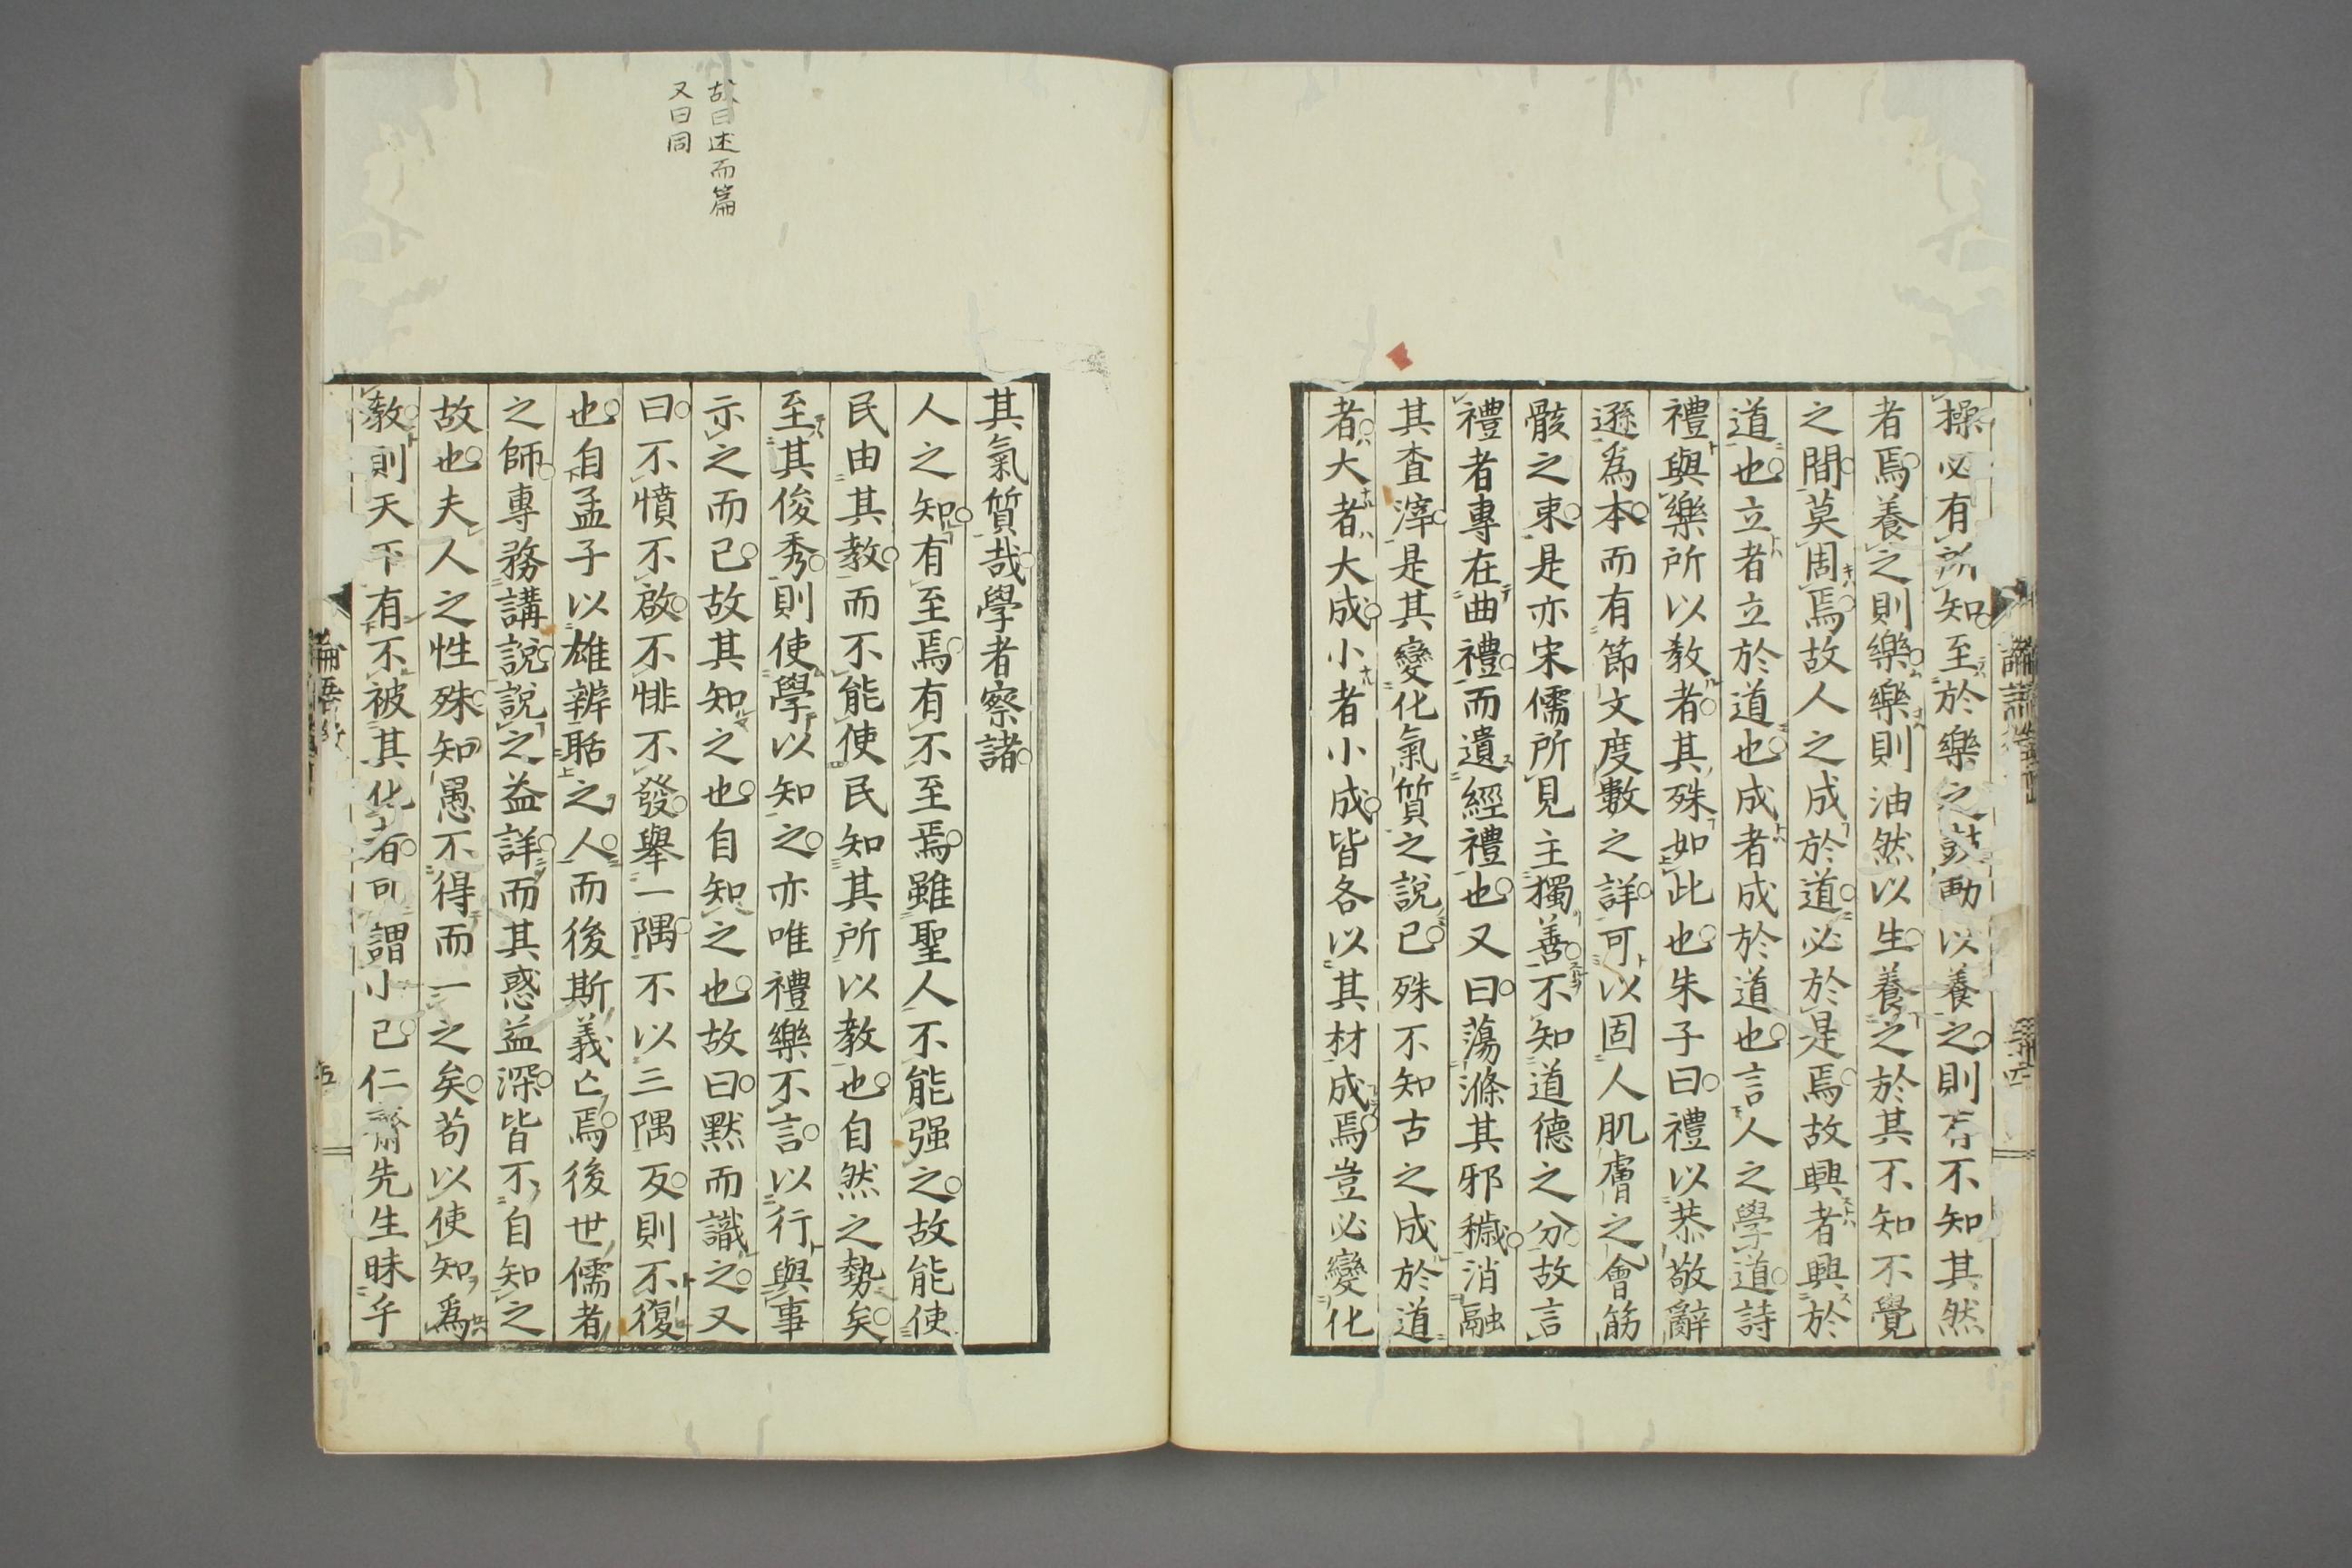 操必有所知至於樂之鼓動以養之則有不知其然
者焉養之則樂樂則油然以生養之於其不知不覺
之間莫周焉故人之成於道必於是焉故興者興於
道也立者立於道也成者成於道也言人之學道詩
禮與樂所以教者其殊如此也朱子曰禮以恭敬辭
遜爲本而有節文度數之詳可以固人肌膚之會筋
骸之束是亦宋儒所見主獨善不知道德之分故言
禮者專在曲禮而遺經禮也又曰蕩滌其邪穢消融
其査滓是其變化氣質之說已殊不知古之成於道
者大者大成小者小成皆各以其材成焉豈必變化
故曰述而篇
又曰同
其氣質哉學者察諸
人之知有至焉有不至焉雖聖人不能强之故能使
民由其教而不能使民知其所以教也自然之勢矣
至其俊秀則使學以知之亦唯禮樂不言以行與事
示之而已故其知之也自知之也故曰默而識之又
曰不憤不啟不悱不發舉一隅不以三隅反則不復
也自孟子以雄辨聒之人而後斯義亡焉後世儒者
之師專務講說說之益詳而其惑益深皆不自知之
故也夫人之性殊知愚不得而一之矣苟以使知爲
教則天下有不被其化者可謂小已仁齋先生昧乎